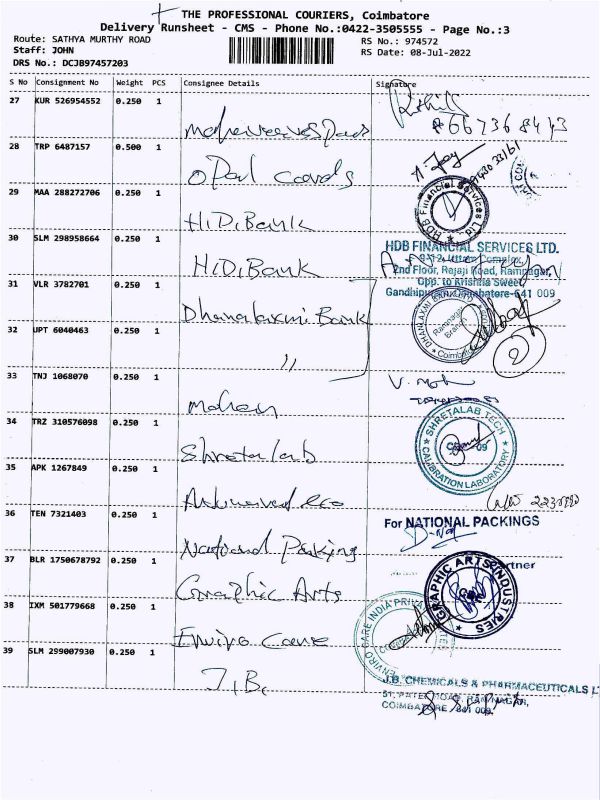 THE PROFESSIONAL COURIERS, Coimbatore
Delivery Runsheet - CMS - Phone No.:0422-3505555 - Page No.:3
Route: SATHYA MURTHY ROAD
RS No.: 974572
Staff: JOHN
RS Date: 08-Jul-2022
DRS No.: DCJB97457203
S No Consignment No Weight PCS Consignee Details Signature
27 KUR 526954552 0.250 1
28 TRP 6487157 0.500 1 Opal cards
29 MAA 288272706 0.250 1 HiDiBank
30 SLM 298958664 0.250 1 HiDiBank
HDB Financial Services Ltd.
HDB FINANCIAL SERVICES LTD.
2nd Floor, Rajaji Road, Ramnagar,
Opp. to Krishna Sweet
641 009
31 VLR 3782701 0.250 1 Dhanalaxmi Bank
Ramnagar Branch
Coimbatore
32 UPT 6040463 0.250 1 "
2
33 TNJ 1068070 0.250 1 mohan
34 TRZ 310576098 0.250 1 Shretalab
SHRETALAB TECH
CALIBRATION LABORATORY
35 APK 1267849 0.250 1
36 TEN 7321403 0.250 1 National Packing
For NATIONAL PACKINGS
Partner
37 BLR 1750678792 0.250 1 Graphic Arts
GRAPHIC ARTS INDUSTRIES
38 IXM 501779668 0.250 1 Enviro Care
ENVIRO CARE INDIA PRIV
39 SLM 299007930 0.250 1 J.B.
J.B. CHEMICALS & PHARMACEUTICALS L
COIMBATORE 641 009